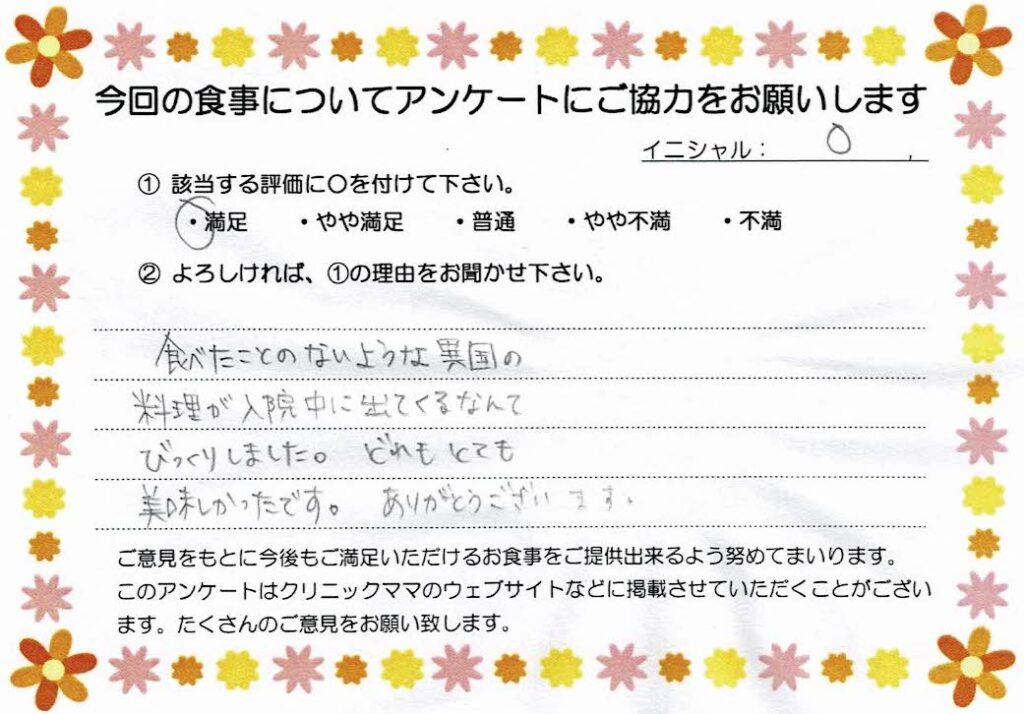 今回の食事についてアンケートにご協力をお願いします
イニシャル： O ，
① 該当する評価に〇を付けて下さい。
・満足 ・やや満足 ・普通 ・やや不満 ・不満
② よろしければ、①の理由をお聞かせ下さい。
食べたことのないような異国の
料理が入院中に出てくるなんて
びっくりしました。 どれもとても
美味しかったです。 ありがとうございます。
ご意見をもとに今後もご満足いただけるお食事をご提供出来るよう努めてまいります。
このアンケートはクリニックママのウェブサイトなどに掲載させていただくことがござい
ます。たくさんのご意見をお願い致します。